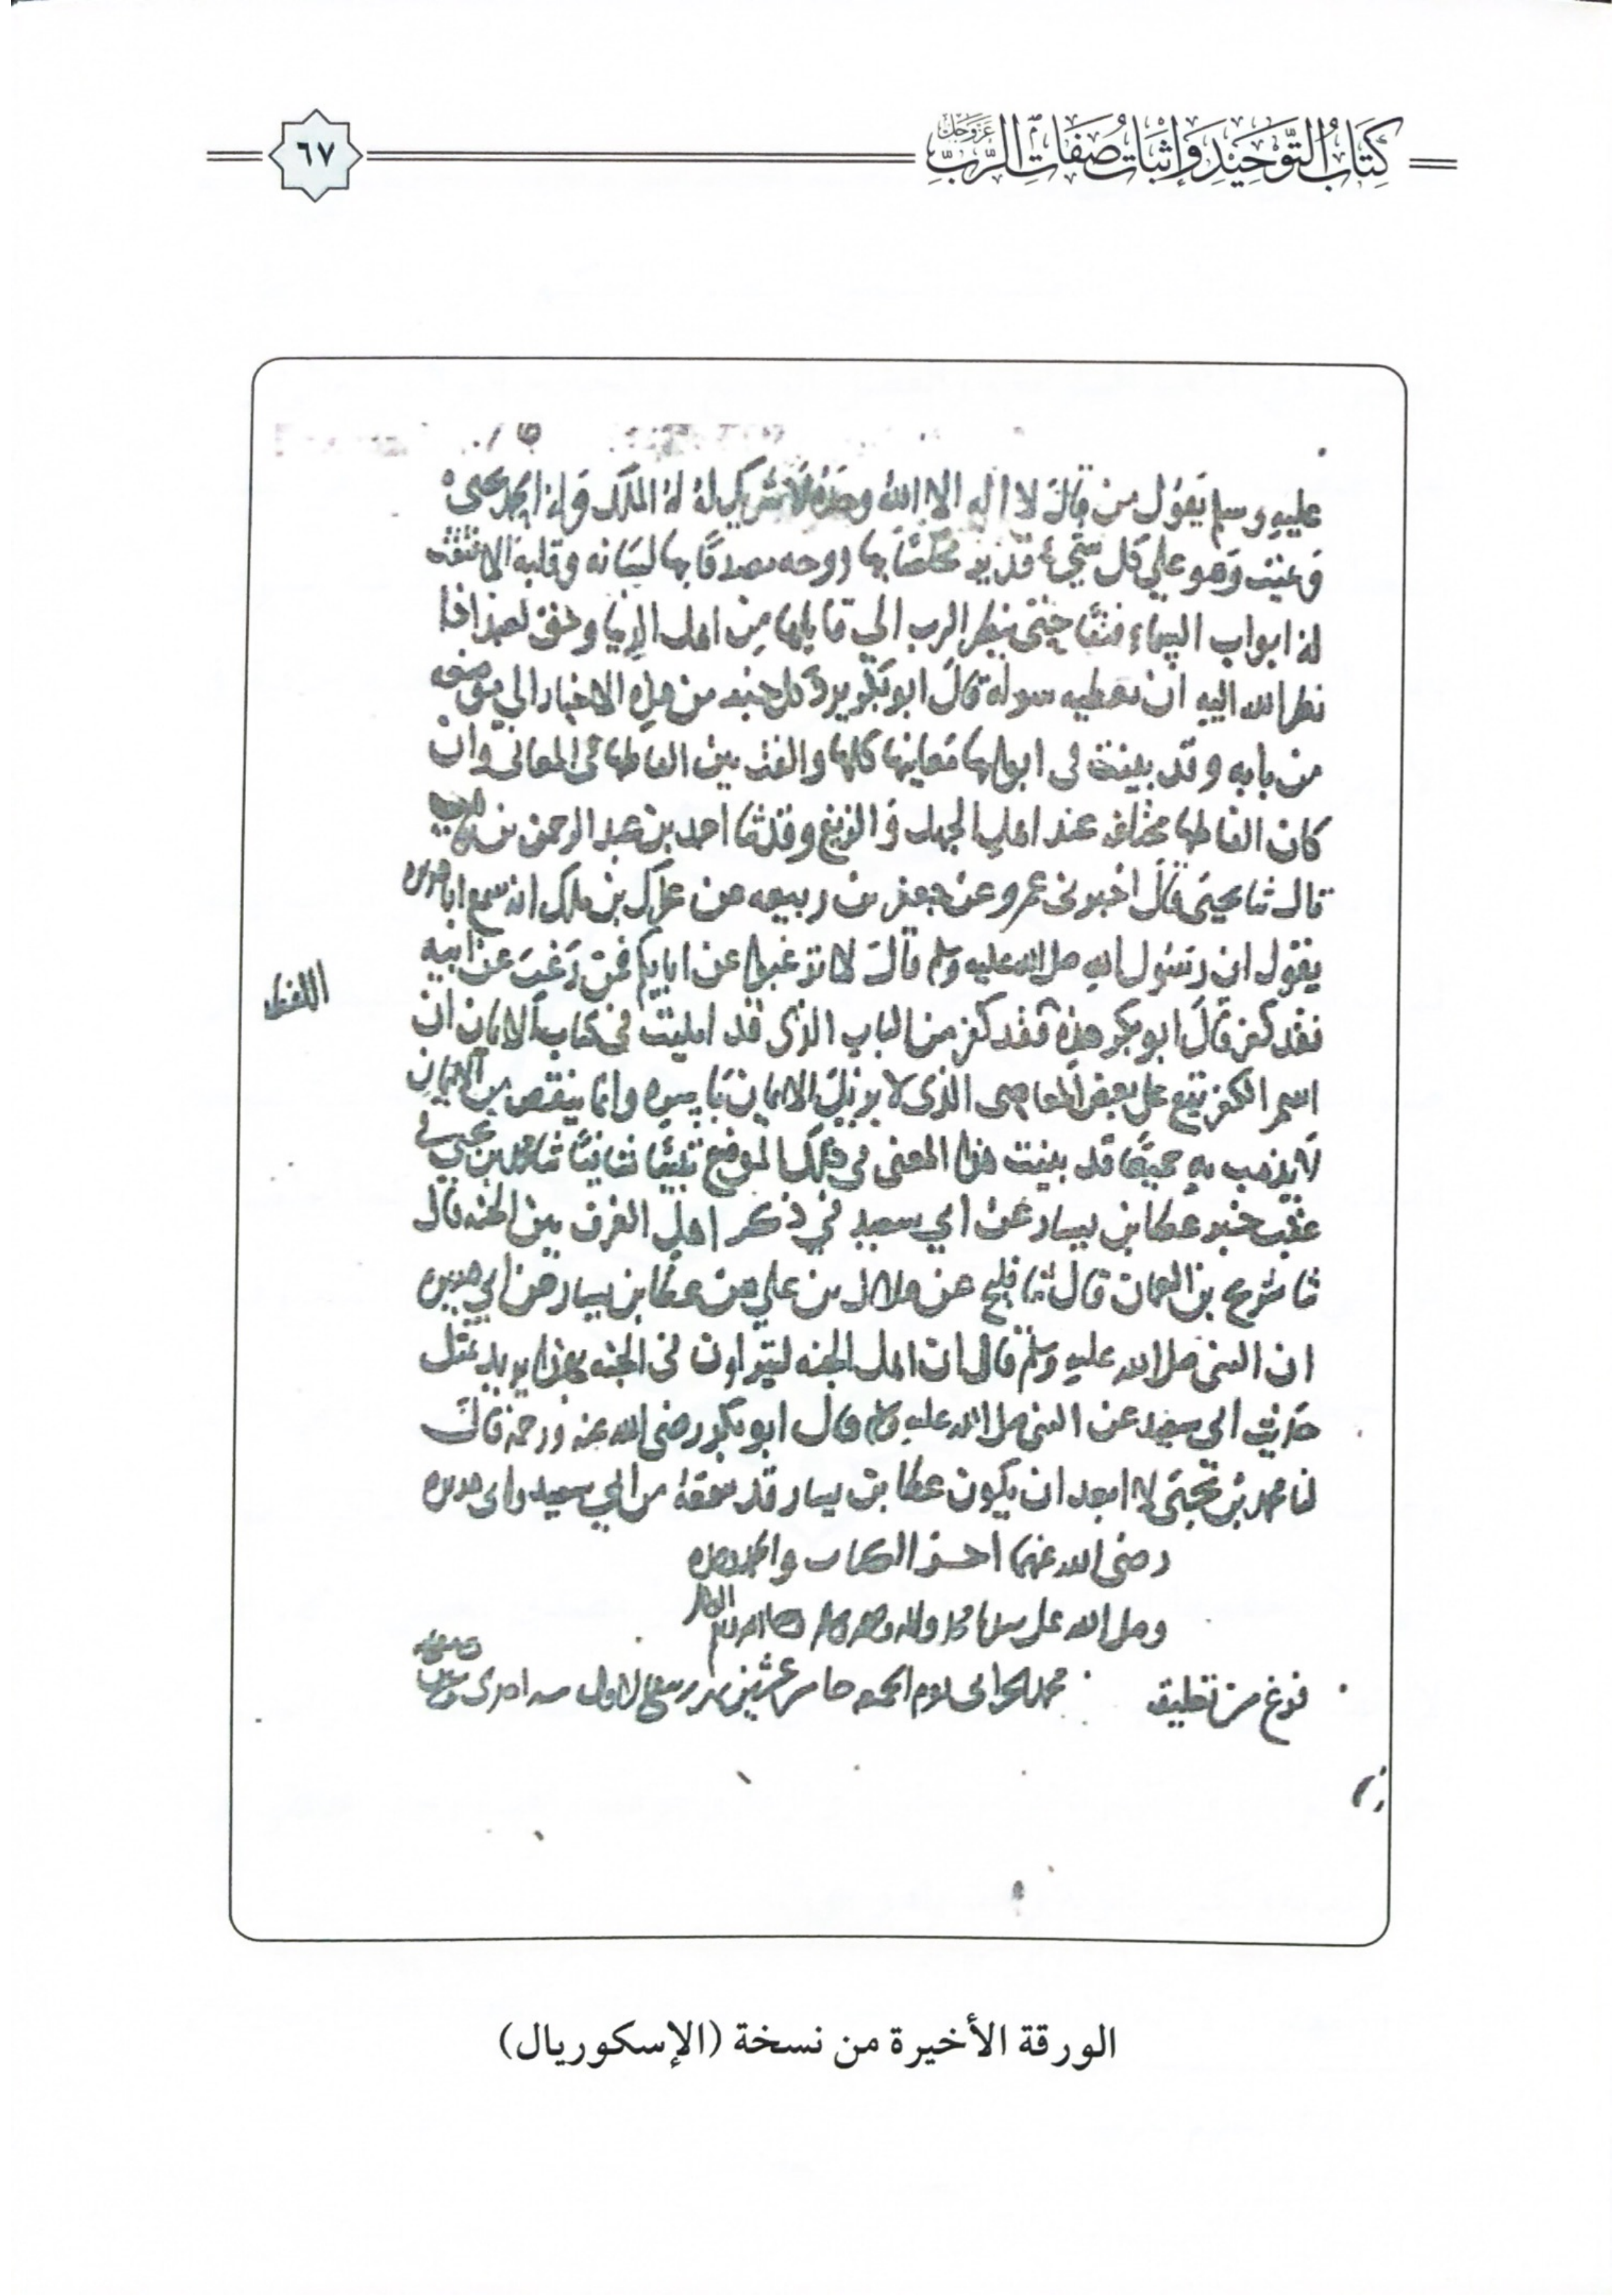 كِتَابُ التَّوْحِيدِ وَإِثْبَاتِ صِفَاتِ الرَّبِّ عَزَّوَجَلَّ
٦٧
عليه وسلم يقول من قال لا اله الا الله وحده لا شريك له له الملك وله الحمد يحيى
ويميت وهو على كل شيء قدير مخلصا بها روحه مصدقا بها لسانه وقلبه الا فتقت
له ابواب السماء فتقا حتى ينظر الرب الى قايلها من اهل الدنيا وحق لعبد اذا
نظر الله اليه ان يعطيه سوله قال ابو بكر يرد كل خبر من هذه الاخبار الى موضعه
من بابه وقد بينت فى ابوابها معاينها كلها والفت بين الفاظها فى المعانى وان
كان الفاظها مختلفه عند اهل الجهل والزيغ وقد ثنا احمد بن عبد الرحمن بن وهب
قال ثنا يحيى قال اخبرنى عمرو عن جعفر بن ربيعه عن عراك بن ملك انه سمع ابا هريره
يقول ان رسول الله صلى الله عليه وسلم قال لا ترغبوا عن ابايكم فمن رغب عن ابيه
فقد كفر قال ابو بكر هذه اللفظه فقد كفر من الباب الذى قد امليت فى كتاب الايمان ان
اسم الكفر يقع على بعض المعاصى الذى لا يزيل الايمان باسره وانما ينقص من الايمان
لا يذهب به جميعا قد بينت هذا المعنى فى ذلك الموضع تبيئا شافيا ثنا محمد بن يحيى فى
عقب خبر عطا بن يسار عن ابي سعيد في ذكر اهل الغرف من الجنه قال
ثنا شريح بن النعمان قال ثنا فليح عن هلال بن علي عن عطا بن يسار عن ابي هريره
ان النبى صلى الله عليه وسلم قال ان اهل الجنه ليتراون فى الجنه بهذا يريد بمثل
حديث ابى سعيد عن النبى صلى الله عليه وسلم قال ابو بكر رضى الله عنه ورحمه قال
لنا محمد بن يحيى لا ابعد ان يكون عطا بن يسار قد سمعه من ابي سعيد وابى هريره
رضى الله عنهما اخر الكتاب والحمد لله
وصلى الله على سيدنا محمد واله وصحبه وسلم
فرغ من تعليقه محمد الحرانى يوم الجمعه خامس عشرين شهر ربيع الاول سنه احدى
الورقة الأخيرة من نسخة (الإسكوريال)